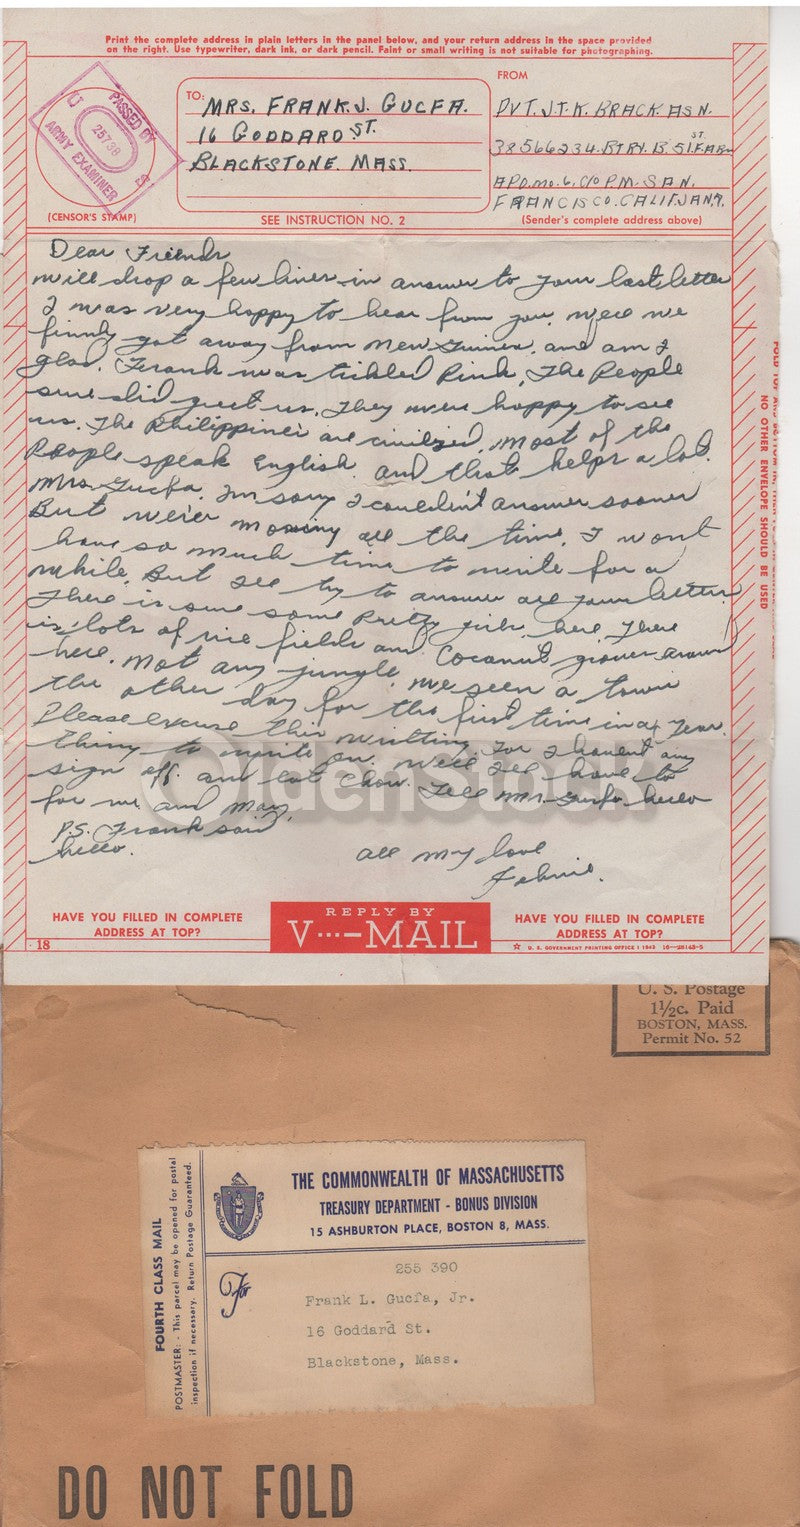 Print the complete address in plain letters in the panel below, and your return address in the space provided
on the right. Use typewriter, dark ink, or dark pencil. Faint or small writing is not suitable for photographing.
PASSED BY
U S
25738
ARMY EXAMINER
(CENSOR'S STAMP)
TO:
MRS. FRANK. J. GUCFA.
16 GODDARD ST.
BLACKSTONE. MASS.
SEE INSTRUCTION NO. 2
FROM
PVT. J.T.K. BRACK. ASN.
38566234. BTRY. B. 51. ST. F.A. BN
APO. no. 6. C/O P.M. SAN.
FRANCISCO. CALIF. JAN.
(Sender's complete address above)
Dear Friends
will drop a few lines in answer to your last letter
I was very happy to hear from you. Well we
finnly got away from New Guinea. and am I
glad. Frank was tickled Pink. The People
sure did greet us. They were happy to see
us. The Philippines are civilized. most of the
People speak English. and that helps a lot.
Mrs. Gucfa. I'm sorry I couldn't answer sooner
But we're moving all the time. I wont
have so much time to write for a
while. But I'll try to answer all your letters
There is sure some Pretty girls here. There
is lots of rice fields and Coconut groves around
here. Not any jungle. We seen a town
the other day for the first time in a year.
Please excuse this writting. For I havent any
thing to write on. Well I'll have to
sign off. and eat chow. Tell Mr. Gucfa hello
for me and May.
P.S. Frank said
hello.
all my love
HAVE YOU FILLED IN COMPLETE
ADDRESS AT TOP?
REPLY BY
V···—MAIL
HAVE YOU FILLED IN COMPLETE
ADDRESS AT TOP?
18
U. S. GOVERNMENT PRINTING OFFICE : 1943 16—28143-5
NO OTHER ENVELOPE SHOULD BE USED
OldenStock
U. S. Postage
1½c. Paid
BOSTON, MASS.
Permit No. 52
FOURTH CLASS MAIL
POSTMASTER: - This parcel may be opened for postal
inspection if necessary. Return Postage Guaranteed.
THE COMMONWEALTH OF MASSACHUSETTS
TREASURY DEPARTMENT - BONUS DIVISION
15 ASHBURTON PLACE, BOSTON 8, MASS.
For
255 390
Frank L. Gucfa, Jr.
16 Goddard St.
Blackstone, Mass.
DO NOT FOLD